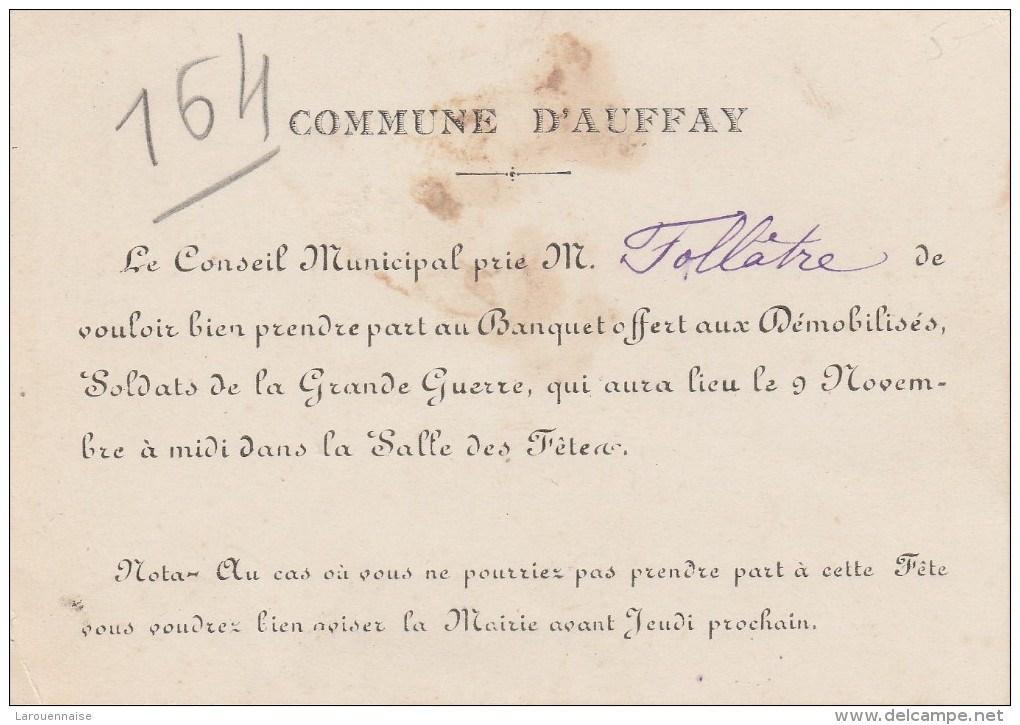 5-
164
COMMUNE D'AUFFAY
Le Conseil Municipal prie M. Follâtre de
vouloir bien prendre part au Banquet offert aux Démobilisés,
Soldats de la Grande Guerre, qui aura lieu le 9 Novem-
bre à midi dans la Salle des Fêtes.
Nota- Au cas où vous ne pourriez pas prendre part à cette Fête
vous voudrez bien aviser la Mairie avant Jeudi prochain.
Larouennaise
www.delcampe.net